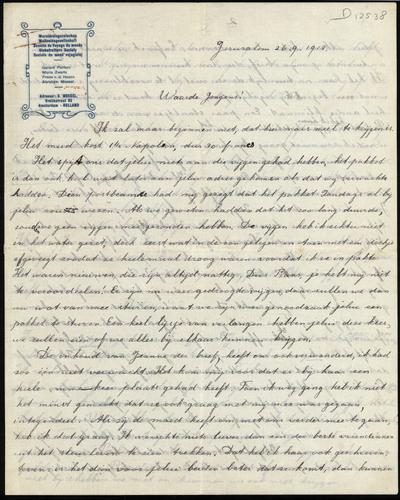 D 12538
Wereldreisgenootschap
Weltreisegesellschaft
Société de Voyage du monde
Globetrotters Society
Gerard Perfors
Maria Zwarts
Frans v. d. Hoorn
Abraham Mossel
Adresse: A. MOSSEL
Amsterdam - HOLLAND
Jeruzalem 26.9.191
Waarde Jongens!
Ik zal maar beginnen met, dat hier weer veel te krijgen is.
Het meel kost 1¼ Napoleon, dus 30 f.
Het spijt ons dat jelui niet aan die vijgen gehad hebben, het pakket
is dan ook heel wat later aan jelui adres gekomen als dat wij verwachtten
hadden. Die postbeambte had mij gezegd dat het pakket Zondags al bij
jelui zou wezen. Als we geweten hadden dat het zoo lang duurde,
zouden we geen vijgen meegezonden hebben. De vijgen heb ik echter niet
in het water gezet, doch eerst wat in de zon gelegen en toen met een doekje
afgeveegd zoodat ze heelemaal droog waren voordat ik ze in pakte.
Het waren nieuwen die zijn altijd nattig. Dus Bram, je hebt mij niet
te veroordeelen! Er zijn nu weer gedroogde vijgen, daar zullen we dan
nu wat van mee sturen, want we zijn weer genoodzaakt jelui een
pakket te sturen. Een heel lijstje van verlangen hebben jelui deze keer,
we zullen zien of we alles bij elkaar kunnen krijgen.
De inhoud van Jeanne de brief, heeft ons ook verwonderd, ik had
zoo iets niet verwacht. Het kan mij voor dat er bij haar een
heele plaats gehad heeft. Toen ik weg ging heb ik niet
het minst gemerkt dat ze ook graag met mij mee was gegaan,
integendeel. Als zij de moed heeft om met ons verder mee te gaan,
heb ik dat graag. Ik wenschte niets liever dan een der beste vriendinnen
uit het leven te zien trekken. Dat heb ik haar ook geschreven,
boven in het dan voor jelui beiden beter dat ze komt, dan kunnen